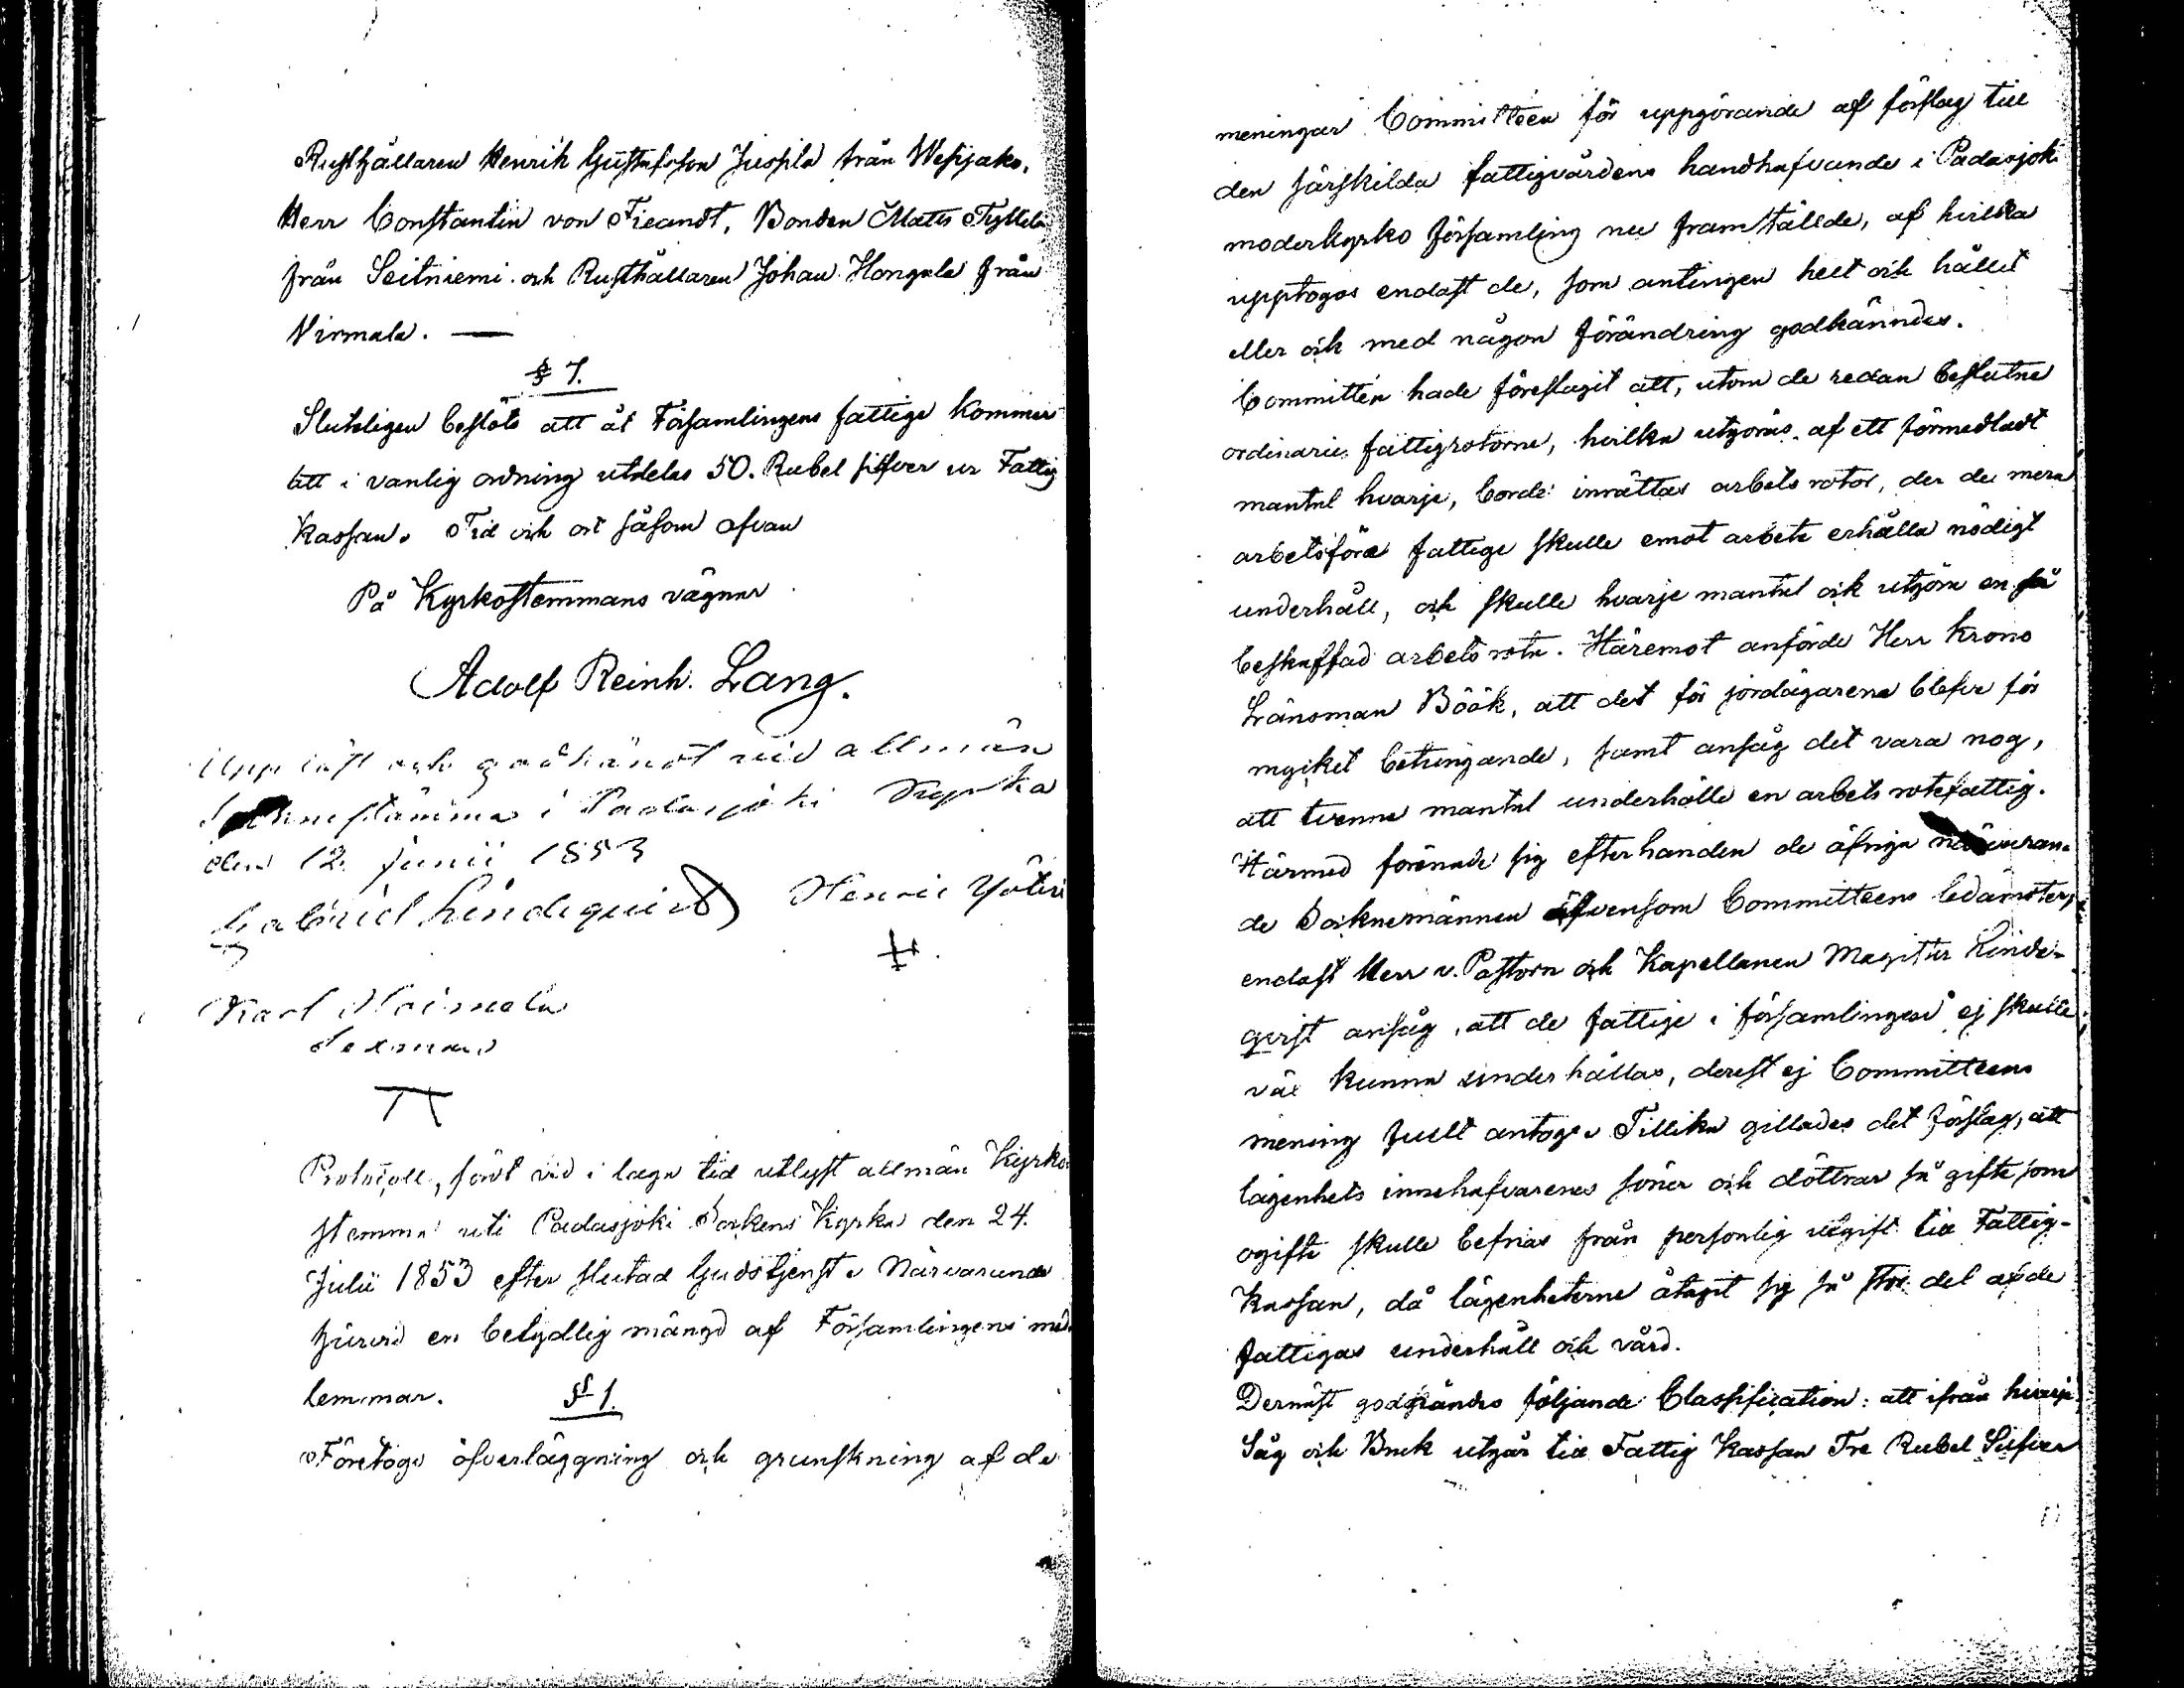 Rusthållaren Henrik Gustafsson Juspila från Wesijako,
Herr Constantin von Fieandt, Bonden Matts
från Seitniemi och Rusthållaren Johan Hongela från
Virmala. —
§ 7.
Sluteligen beslöts att åt Församlingens fattige kommer
att i vanlig ordning utdelas 50. Rubel silfver ur Fattig
Kassan. Tid och ort såsom ofvan
På Kyrkostemmans vägnar
Adolf Reinh. Lang.
Uppläst och godkändt vid allmän
Sockenstämma i Padasjoki Kyrka
den 12. Junii 1853
Gabriel Lindequist Henric
Karl
Sexman
Protocoll, fördt vid i laga tid utlyst allmän Kyrko
stemma uti Padasjoki Sockens Kyrka den 24.
Julii 1853 efter slutad Gudstjenst. Närvarande
härvid en betydlig mängd af Församlingens med-
lemmar. § 1.
Företogs öfverläggning och granskning af de
meningar Committéen för uppgörande af förslag till
den särskilda fattigvårdens handhafvande i Padasjoki
moderkyrko församling nu framställde, af hvilka
upptogos endast de, som antingen helt och hållet
eller och med någon förändring godkändes.
Committén hade föreslagit att, utom de redan beslutne
ordinarie fattigrotorne, hvilka utgöras af ett förmedladt
mantal hvarje, borde inrättas arbets rotor, der de mera
arbetsföre fattige skulle emot arbete erhålla nödigt
underhåll, och skulle hvarje mantal och utgöra en så
beskaffad arbets rota. Häremot anförde Herr Krono
Länsman Böök, att det för jordägarena blefve för
mycket betungande, samt ansåg det vara nog,
att tvenne mantal underhålla en arbets rotefattig.
Härmed förenade sig efterhanden de öfriga närvaran-
de Socknemännen äfvensom Committeens ledamöter,
endast Herr v. Pastorn och Kapellanen Magister Linde-
qvist ansåg, att de fattige i församlingen ej skulle
väl kunna underhållas, derest ej Committeens
mening fullt antogs. Tillika gillades det förslag, att
lägenhets innehafvarenes söner och döttrar så gifte som
ogifte skulle befrias från personlig utgift till Fattig-
Kassan, då lägenheterne åtagit sig så stor del af de
fattigas underhåll och vård.
Dernäst godkändes följande Classification: att ifrån hvarje
Såg och Bruk utgår till Fattig Kassan Tre Rubel Silfver